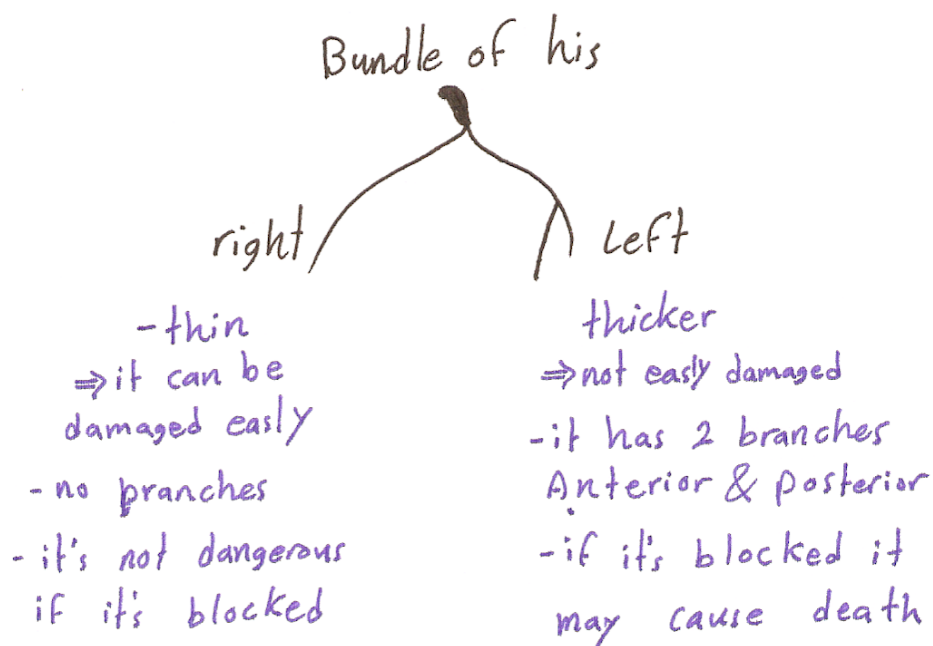 Bundle of his
right
Left
-thin
⇒it can be
damaged easly
-no branches
-it's not dangerous
if it's blocked
thicker
⇒not easly damaged
-it has 2 branches
Anterior & posterior
-if it's blocked it
may cause death